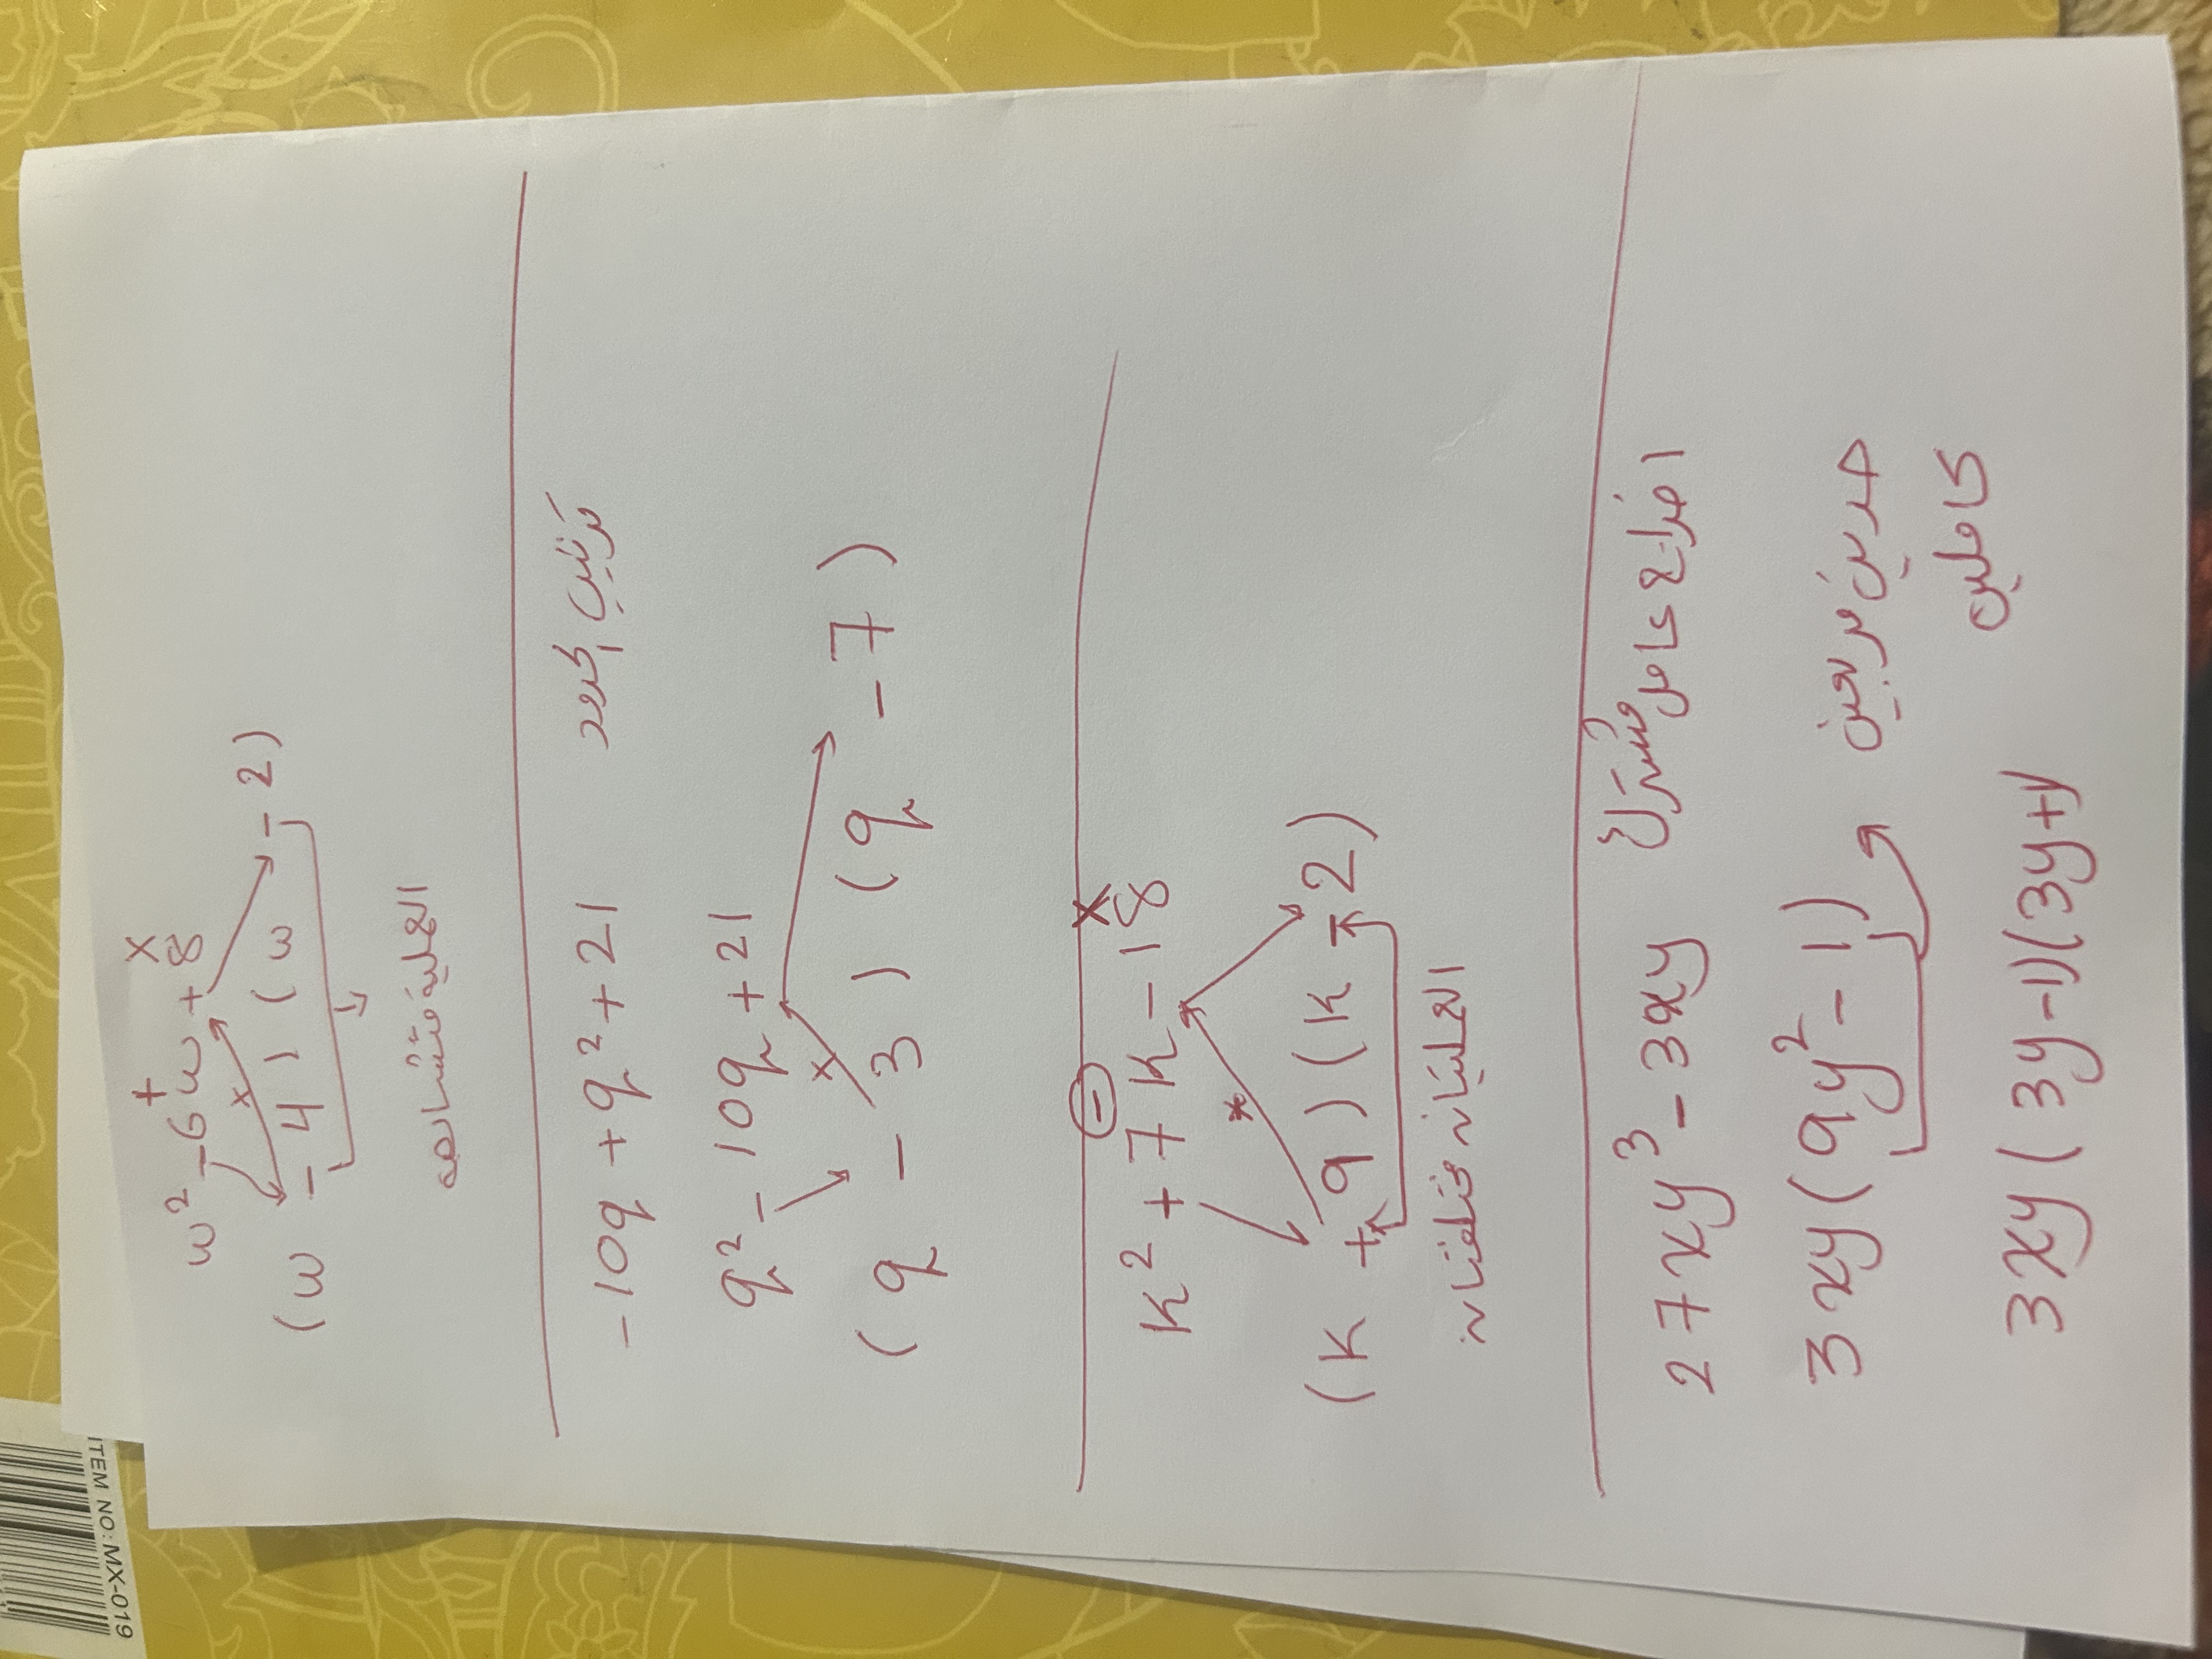 + ×
w² - 6w + 8
×
(w - 4) (w - 2)
العملية متشابهه
-10q + q² + 21 ترتيب الحدود
q² - 10q + 21
×
(q - 3) (q - 7)
- ×
K² + 7K - 18
×
(K + 9) (K - 2)
العمليتان مختلفتان
27xy³ - 3xy اخراج عامل مشترك
3xy (9y² - 1) حدين مربعين
كاملين
3xy (3y - 1)(3y + 1)
ITEM NO: MX-019